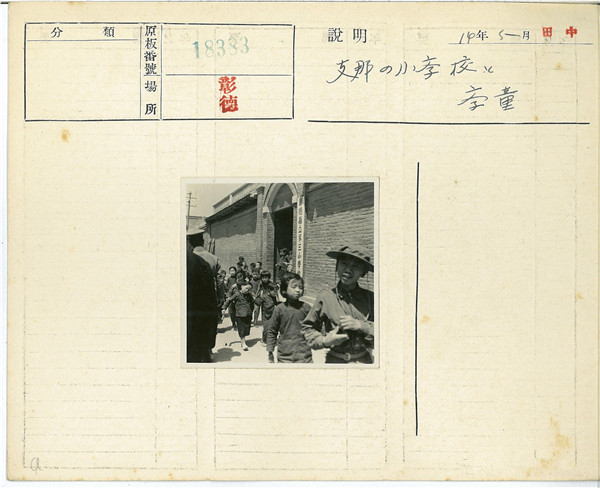 分類
原板番號
18383
場所
彰德
説明
14年5一月
田中
支那の小学校と
学童
縣立第三小學